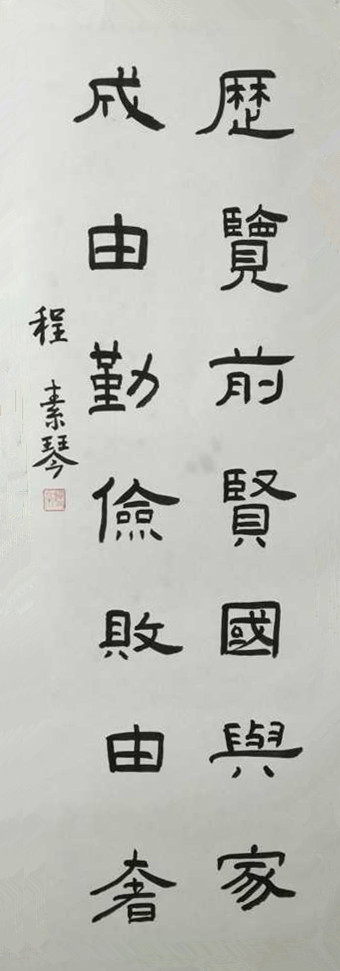 歷覽前賢國與家
成由勤儉敗由奢
程素琴